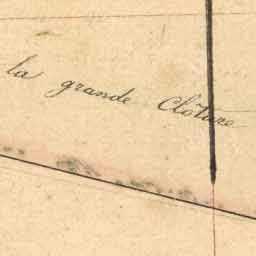 la grande Clôture